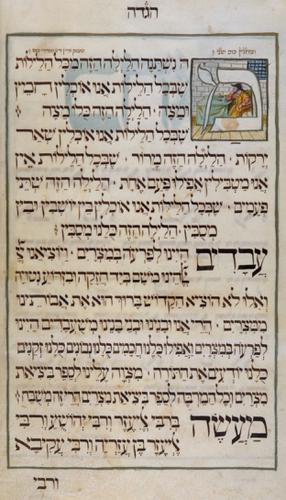 הגדה
ומוזגין כוס שני
מה נשתנה הלילה הזה מכל הלילות
שבכל הלילות אנו אוכלין חמץ
ומצה · הלילה הזה כלו מצה ·
שבכל הלילות אנו אוכלין שאר
ירקות · הלילה הזה מרור · שבכל הלילות אין
אנו מטבילין אפילו פעם אחת · הלילה הזה שתי
פעמים · שבכל הלילות אנו אוכלין בין יושבין ובין
מסובין · הלילה הזה כלנו מסובין
עבדים היינו לפרעה במצרים · ויוציאנו יי
אלהינו משם ביד חזקה ובזרוע נטויה
ואלו לא הוציא הקדוש ברוך הוא את אבותינו
ממצרים · הרי אנו ובנינו ובני בנינו משועבדים היינו
לפרעה במצרים ואפילו כלנו חכמים כלנו נבונים כלנו זקנים
כלנו יודעים את התורה · מצוה עלינו לספר ביציאת
מצרים וכל המרבה לספר ביציאת מצרים הרי זה משובח
מעשה ברבי אליעזר ורבי יהושע ורבי
אלעזר בן עזריה ורבי עקיבא
ורבי